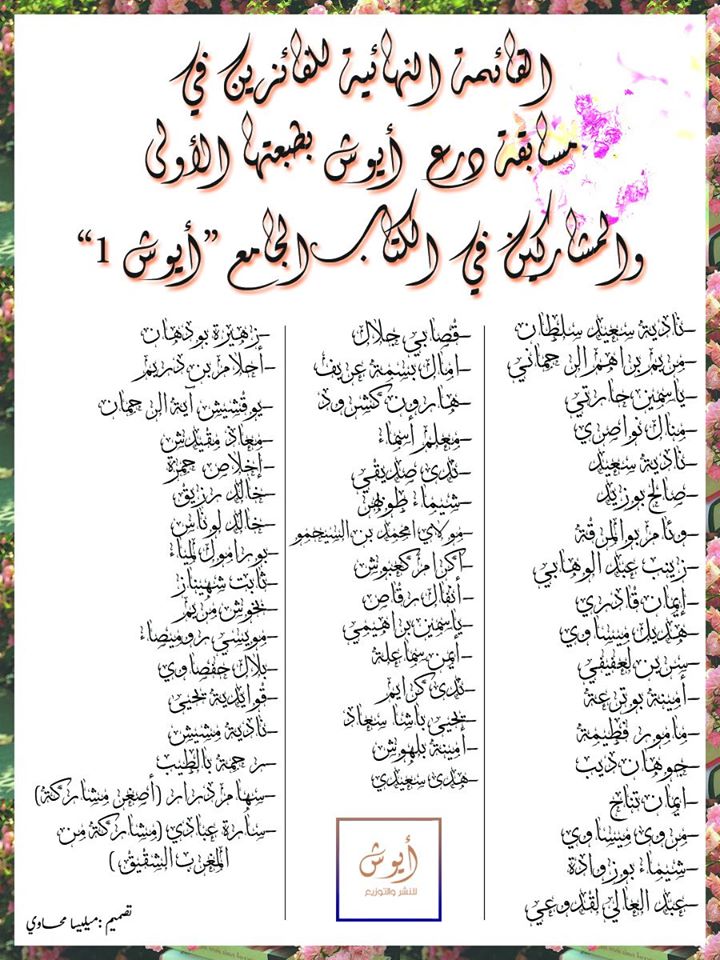 القائمة النهائية للفائزين في
مسابقة درع أيوش بطبعتها الأولى
والمشاركين في الكتاب الجامع "أيوش 1"
-نادية سعيد سلطان
-مريم براهم الرحماني
-ياسمين حارتي
-منال نواصري
-نادية سعيد
-صالح بوزيد
-وئام بوالمرقة
-زينب عبد الوهابي
-إيمان قادري
-هديل ميساوي
-سرين لعفيفي
-أمينة بوترعة
-مامور فطيمة
-جوهان ديب
-إيمان تناح
-مروى ميساوي
-شيماء بوزوادة
-عبد العالي لقدوعي
-قصابي جلال
-امال بسمة عريف
-هارون كشرود
-معلم أسماء
-ندى صديقي
-شيماء طوهر
-مولاي امحمد بن السيحمو
-أكرام كعبوش
-أنفال رقاص
-ياسمين براهيمي
-أيمن سماعلة
-ندى كرايم
-يحيى باشا سعاد
-أمينة بلهوش
-هدى سعيدي
أيوش
للنشر والتوزيع
-زهيرة بودهان
-أحلام بن دريم
-بوقشيش آية الرحمان
-معاذ مقيدش
-إخلاص حمزة
-خالد رزيق
-خالد لوناس
-بورامول لمياء
-ثابت شهيناز
-بخوش مريم
-مويسي روميصاء
-بلال حفصاوي
-قوايدية يحيى
-نادية مشيش
-رحمة بالطيب
-سهام درار (أصغر مشاركة)
-سارة عبادي (مشاركة من
المغرب الشقيق)
تصميم :ميليسا محاوي